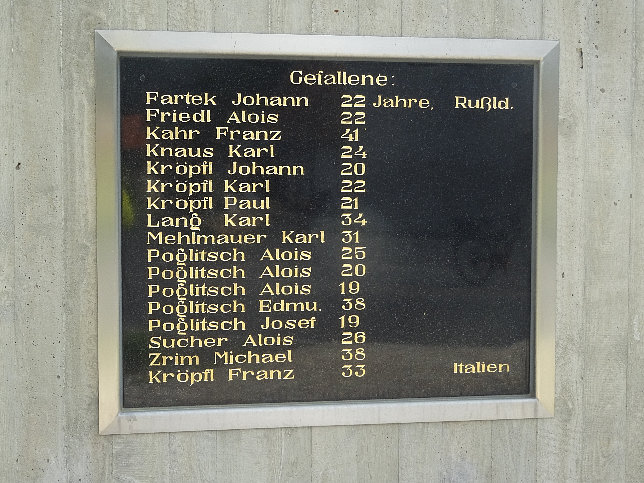 Gefallene:
Fartek Johann 22 Jahre, Rußld.
Friedl Alois 22
Kahr Franz 41
Knaus Karl 24
Kröpfl Johann 20
Kröpfl Karl 22
Kröpfl Paul 21
Lang Karl 34
Mehlmauer Karl 31
Poglitsch Alois 25
Poglitsch Alois 20
Poglitsch Alois 19
Poglitsch Edmu. 38
Poglitsch Josef 19
Sucher Alois 26
Zrim Michael 38
Kröpfl Franz 33 Italien